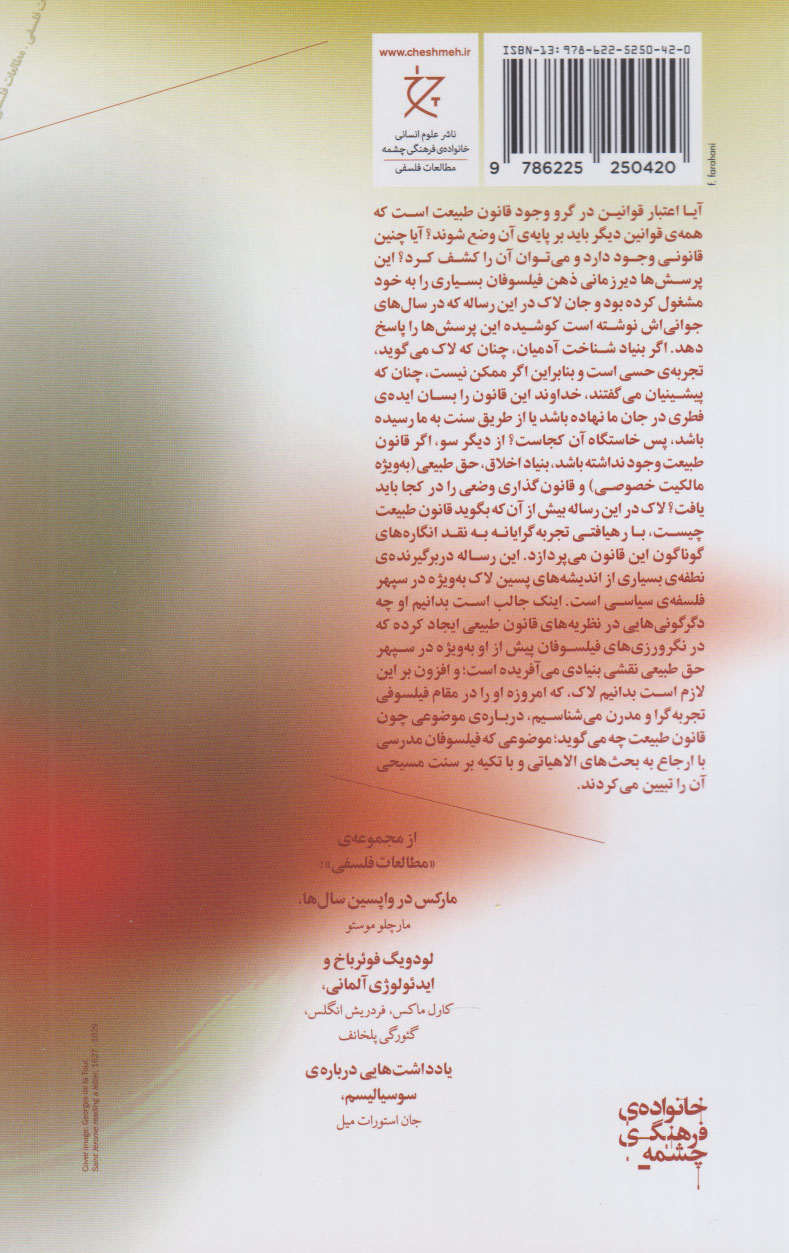 مطالعات فلسفی
www.cheshmeh.ir
ناشر علوم انسانی
خانواده‌ی فرهنگی چشمه
مطالعات فلسفی
ISBN-13: 978-622-5250-42-0
9 786225 250420
f. farahani
آیـا اعتبار قوانیـن در گرو وجود قانون طبیعت اسـت که
همه‌ی قوانین دیگر باید بر پایه‌ی آن وضع شوند؟ آیا چنین
قانونـی وجود دارد و می‌توان آن را کشف کرد؟ این
پرسـش‌ها دیرزمانی ذهن فیلسوفان بسیاری را به خود
مشغول کرده بود و جان لاک در این رساله که در سال‌های
جوانی‌اش نوشته است کوشیده این پرسش‌ها را پاسخ
دهد. اگر بنیاد شـناخت آدمیان، چنان که لاک می‌گوید،
تجربه‌ی حسی است و بنابراین اگر ممکن نیست، چنان که
پیشـینیان می‌گفتند، خداوند این قانون را بسان ایده‌ی
فطری در جان ما نهاده باشد یا از طریق سنت به ما رسیده
باشد، پس خاستگاه آن کجاست؟ از دیگر سو، اگر قانون
طبیعت وجود نداشته باشد، بنیاد اخلاق، حق طبیعی (به‌ویژه
مالکیت خصوصی) و قانون‌گذاری وضعی را در کجا باید
یافت؟ لاک در این رساله بیش از آن که بگوید قانون طبیعت
چیست، بـا رهیافتی تجربه‌گرایانه به نقد انگاره‌های
گوناگون این قانون می‌پردازد. این رساله دربرگیرنده‌ی
نطفه‌ی بسیاری از اندیشه‌های پسین لاک به‌ویژه در سپهر
فلسفه‌ی سیاسی است. اینک جالب است بدانیم او چه
دگرگونی‌هایی در نظریه‌های قانون طبیعی ایجاد کرده که
در نگرورزی‌های فیلسـوفان پیش از او به‌ویژه در سـپهر
حق طبیعی نقشی بنیادی می‌آفریده است؛ و افزون بر این
لازم اسـت بدانیم لاک، که امروزه او را در مقام فیلسوفی
تجربه‌گرا و مدرن می‌شناسـیم، درباره‌ی موضوعی چون
قانون طبیعت چه می‌گوید؛ موضوعی که فیلسوفان مدرسی
با ارجاع به بحث‌های الاهیاتی و با تکیه بر سنت مسیحی
آن را تبیین می‌کردند.
از مجموعه‌ی
«مطالعات فلسفی»:
مارکس در واپسین سال‌ها،
مارچلو موستو
لودویگ فوئرباخ و
ایدئولوژی آلمانی،
کارل ماکس، فردریش انگلس،
گئورگی پلخانف
یادداشت‌هایی درباره‌ی
سوسیالیسم،
جان استورات میل
Cover image: Georges de la Tour,
Saint Jerome reading a letter, 1627 - 1629
خانواده‌ی
فرهنگی
چشمه